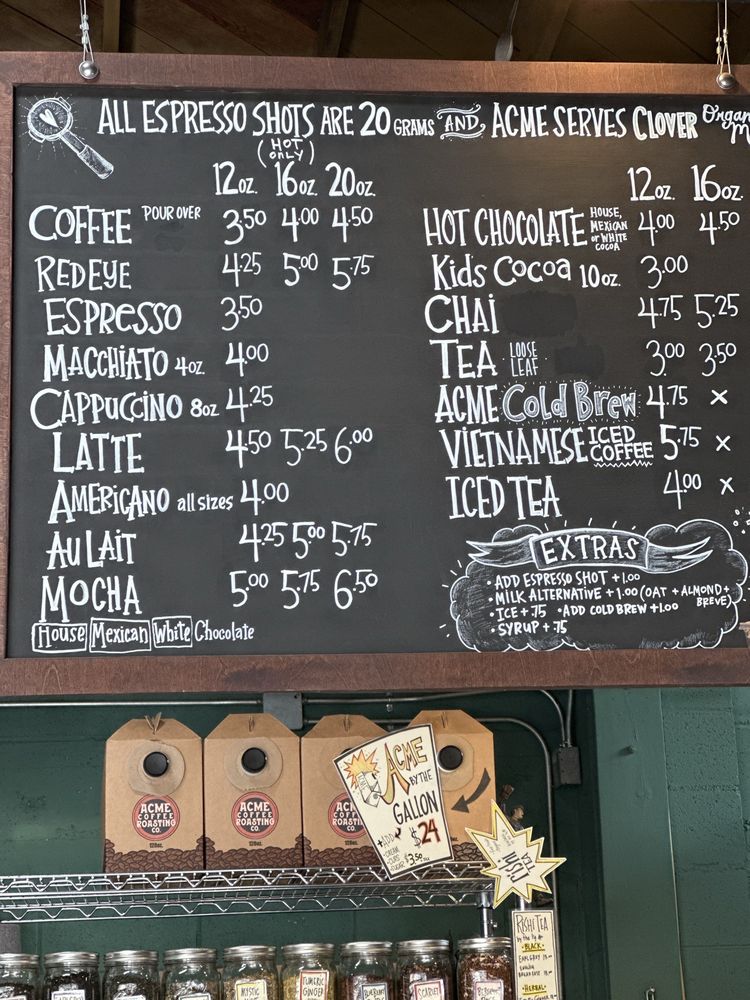 ALL ESPRESSO SHOTS ARE 20 GRAMS AND ACME SERVES CLOVER
(HOT ONLY)
12oz. 16oz. 20oz.
COFFEE POUR OVER 3.50 4.00 4.50
RED EYE 4.25 5.00 5.75
ESPRESSO 3.50
MACCHIATO 4oz 4.00
CAPPUCCINO 8oz 4.25
LATTE 4.50 5.25 6.00
AMERICANO all sizes 4.00
AU LAIT 4.25 5.00 5.75
MOCHA 5.00 5.75 6.50
House Mexican White Chocolate
12oz. 16oz.
HOT CHOCOLATE HOUSE, MEXICAN or WHITE COCOA 4.00 4.50
Kids Cocoa 10oz. 3.00
CHAI 4.75 5.25
TEA LOOSE LEAF 3.00 3.50
ACME Cold Brew 4.75 x
VIETNAMESE ICED COFFEE 5.75 x
ICED TEA 4.00 x
EXTRAS
• ADD ESPRESSO SHOT + 1.00
• MILK ALTERNATIVE + 1.00 (OAT + ALMOND + BREVE)
• ICE + .75 • ADD COLD BREW + 1.00
• SYRUP + .75
ACME COFFEE ROASTING CO.
128oz.
ACME COFFEE ROASTING CO.
128oz.
ACME BY THE GALLON $24
RISHI TEA
BLACK
EARL GREY
HERBAL
MYSTIC
TURMERIC GINGER
BLUEBERRY
SCARLET